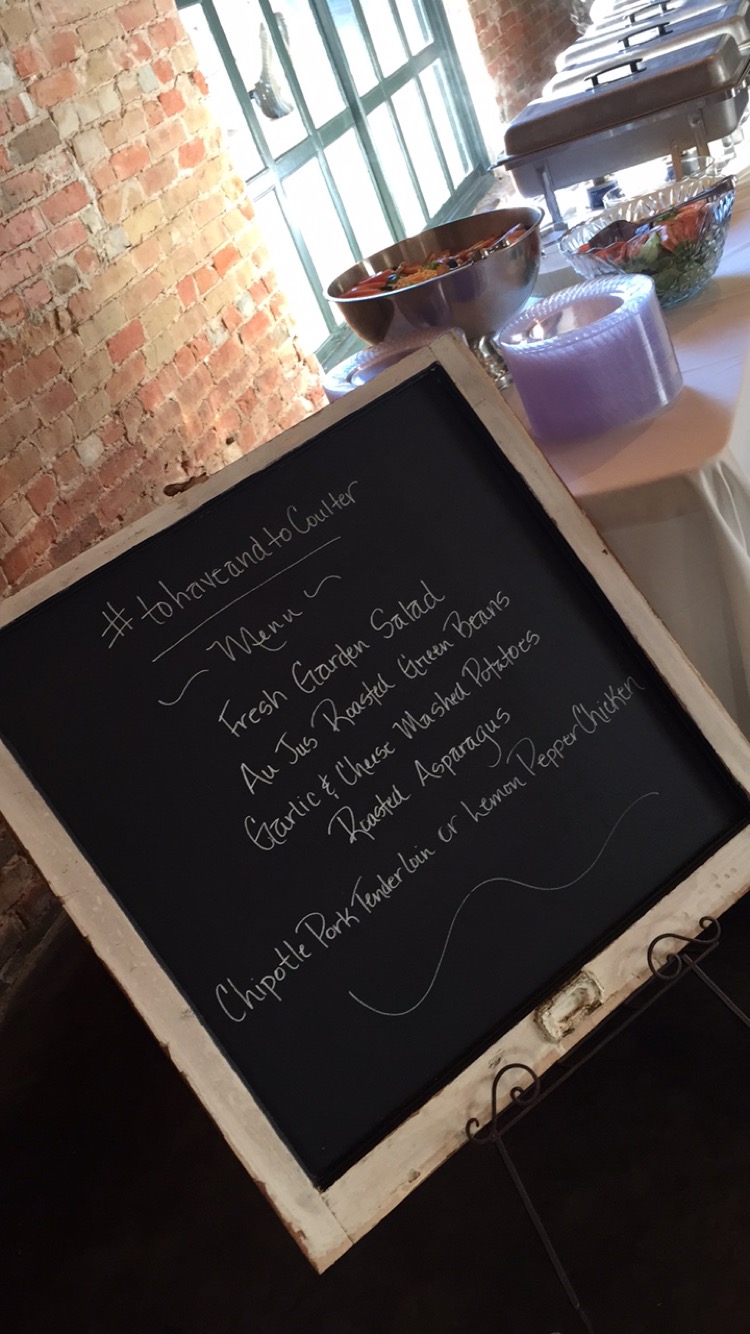 #tohaveandtoCoulter
~ Menu ~
Fresh Garden Salad
Au Jus Roasted Green Beans
Garlic & Cheese Mashed Potatoes
Roasted Asparagus
Chipotle Pork Tenderloin or Lemon Pepper Chicken